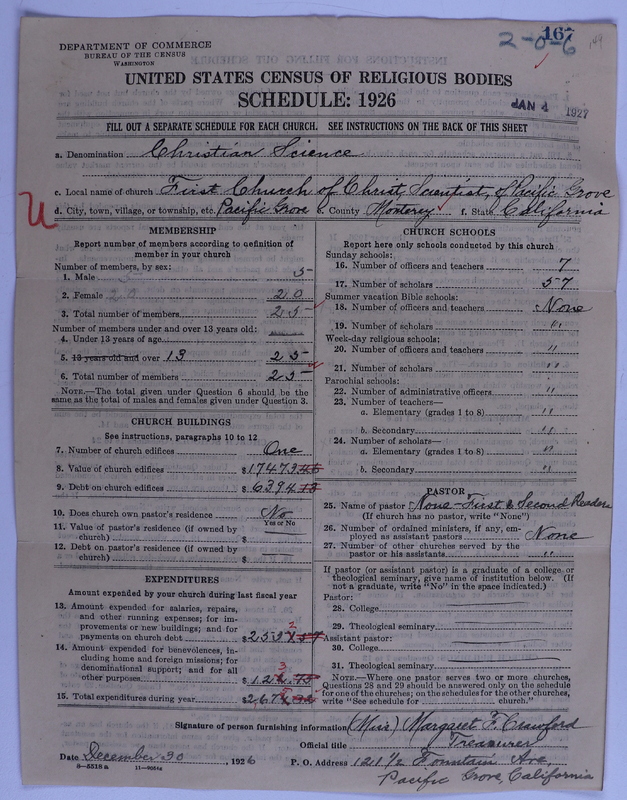 167
2-0-6
144
DEPARTMENT OF COMMERCE
BUREAU OF THE CENSUS
WASHINGTON
UNITED STATES CENSUS OF RELIGIOUS BODIES
SCHEDULE: 1926
JAN 4 1927
FILL OUT A SEPARATE SCHEDULE FOR EACH CHURCH. SEE INSTRUCTIONS ON THE BACK OF THIS SHEET
a. Denomination Christian Science
c. Local name of church First Church of Christ, Scientist, of Pacific Grove
U
d. City, town, village, or township, etc. Pacific Grove e. County Monterey f. State California
MEMBERSHIP
Report number of members according to definition of
member in your church
Number of members, by sex:
1. Male 5
2. Female 20 20
3. Total number of members 25
Number of members under and over 13 years old:
4. Under 13 years of age
5. 13 years old and over 13 25
6. Total number of members 25
NOTE.—The total given under Question 6 should be the
same as the total of males and females given under Question 3.
CHURCH BUILDINGS
See instructions, paragraphs 10 to 12
7. Number of church edifices One
8. Value of church edifices $17479
9. Debt on church edifices $6394
10. Does church own pastor's residence No
Yes or No
11. Value of pastor's residence (if owned by
church) $
12. Debt on pastor's residence (if owned by
church) $
EXPENDITURES
Amount expended by your church during last fiscal year
13. Amount expended for salaries, repairs,
and other running expenses; for im-
provements or new buildings; and for
payments on church debt $
14. Amount expended for benevolences, in-
cluding home and foreign missions; for
denominational support; and for all
other purposes $
15. Total expenditures during year $
CHURCH SCHOOLS
Report here only schools conducted by this church
Sunday schools:
16. Number of officers and teachers 7
17. Number of scholars 57
Summer vacation Bible schools:
18. Number of officers and teachers None
19. Number of scholars "
Week-day religious schools:
20. Number of officers and teachers "
21. Number of scholars "
Parochial schools:
22. Number of administrative officers "
23. Number of teachers—
a. Elementary (grades 1 to 8) "
b. Secondary "
24. Number of scholars—
a. Elementary (grades 1 to 8) "
b. Secondary "
PASTOR
25. Name of pastor None-First & Second Readers
(If church has no pastor, write "None")
26. Number of ordained ministers, if any, em-
ployed as assistant pastors None
27. Number of other churches served by the
pastor or his assistants "
If pastor (or assistant pastor) is a graduate of a college or
theological seminary, give name of institution below. (If
not a graduate, write "No" in the space indicated.)
Pastor:
28. College
29. Theological seminary
Assistant pastor:
30. College
31. Theological seminary
NOTE.—Where one pastor serves two or more churches,
Questions 28 and 29 should be answered only on the schedule
for one of the churches; on the schedules for the other churches,
write "See schedule for church."
Signature of person furnishing information (Miss) Margaret F. Crawford
Official title Treasurer
Date December 30, 1926 P. O. Address 121 1/2 Fountain Ave,
8-5518 a
Pacific Grove, California